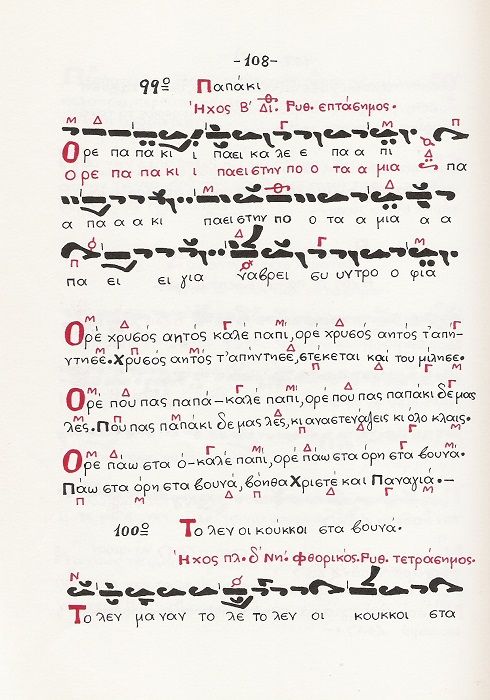 -108-
99ο Παπάκι
Ἦχος Β΄ Δι. Ρυθ. επτάσημος.
Μ Δ Γ Μ Π
Ορε πα πα κι ι παει κα λε ε πα α πι
ο ρε πα πα κι ι παει στην πο ο τα α μια πα
Μ Δ
α πα α α κι παει στην πο ο τα α μια α α
Δ Γ Μ
Π
πα ει ει για να βρει συ υντρο ο φια
Μ Δ Γ Μ Δ Γ
Ορέ χρυσός αητός καλέ παπί, ορέ χρυσός αητός τ'απή-
ντησε. Χρυσός αητός τ'απήντησε, στέκεται και του μίλησε.
Μ Π Μ Δ Π Δ Γ Γ Μ
Μ Δ Γ Μ Δ Γ
Ορέ που πας παπά-καλέ παπί, ορέ που πας παπάκι δε μας
λες. Που πας παπάκι δε μας λες, κι αναστενάζεις κι όλο κλαις.
Μ Δ Γ Μ Δ Γ Μ
Ορέ πάω στα ό-καλέ παπί, ορέ πάω στα όρη στα βουνά.
Πάω στα όρη στα βουνά, βόηθα Χριστέ και Παναγιά.-
Π Μ Δ Π Γ Μ
100ο Το λεν οι κούκκοι στα βουνά.
Ἦχος πλ. δ΄ Νη΄ φθορικός. Ρυθ. τετράσημος.
Ν
Το λεν μα ναν το λε το λεν οι κουκκοι στα